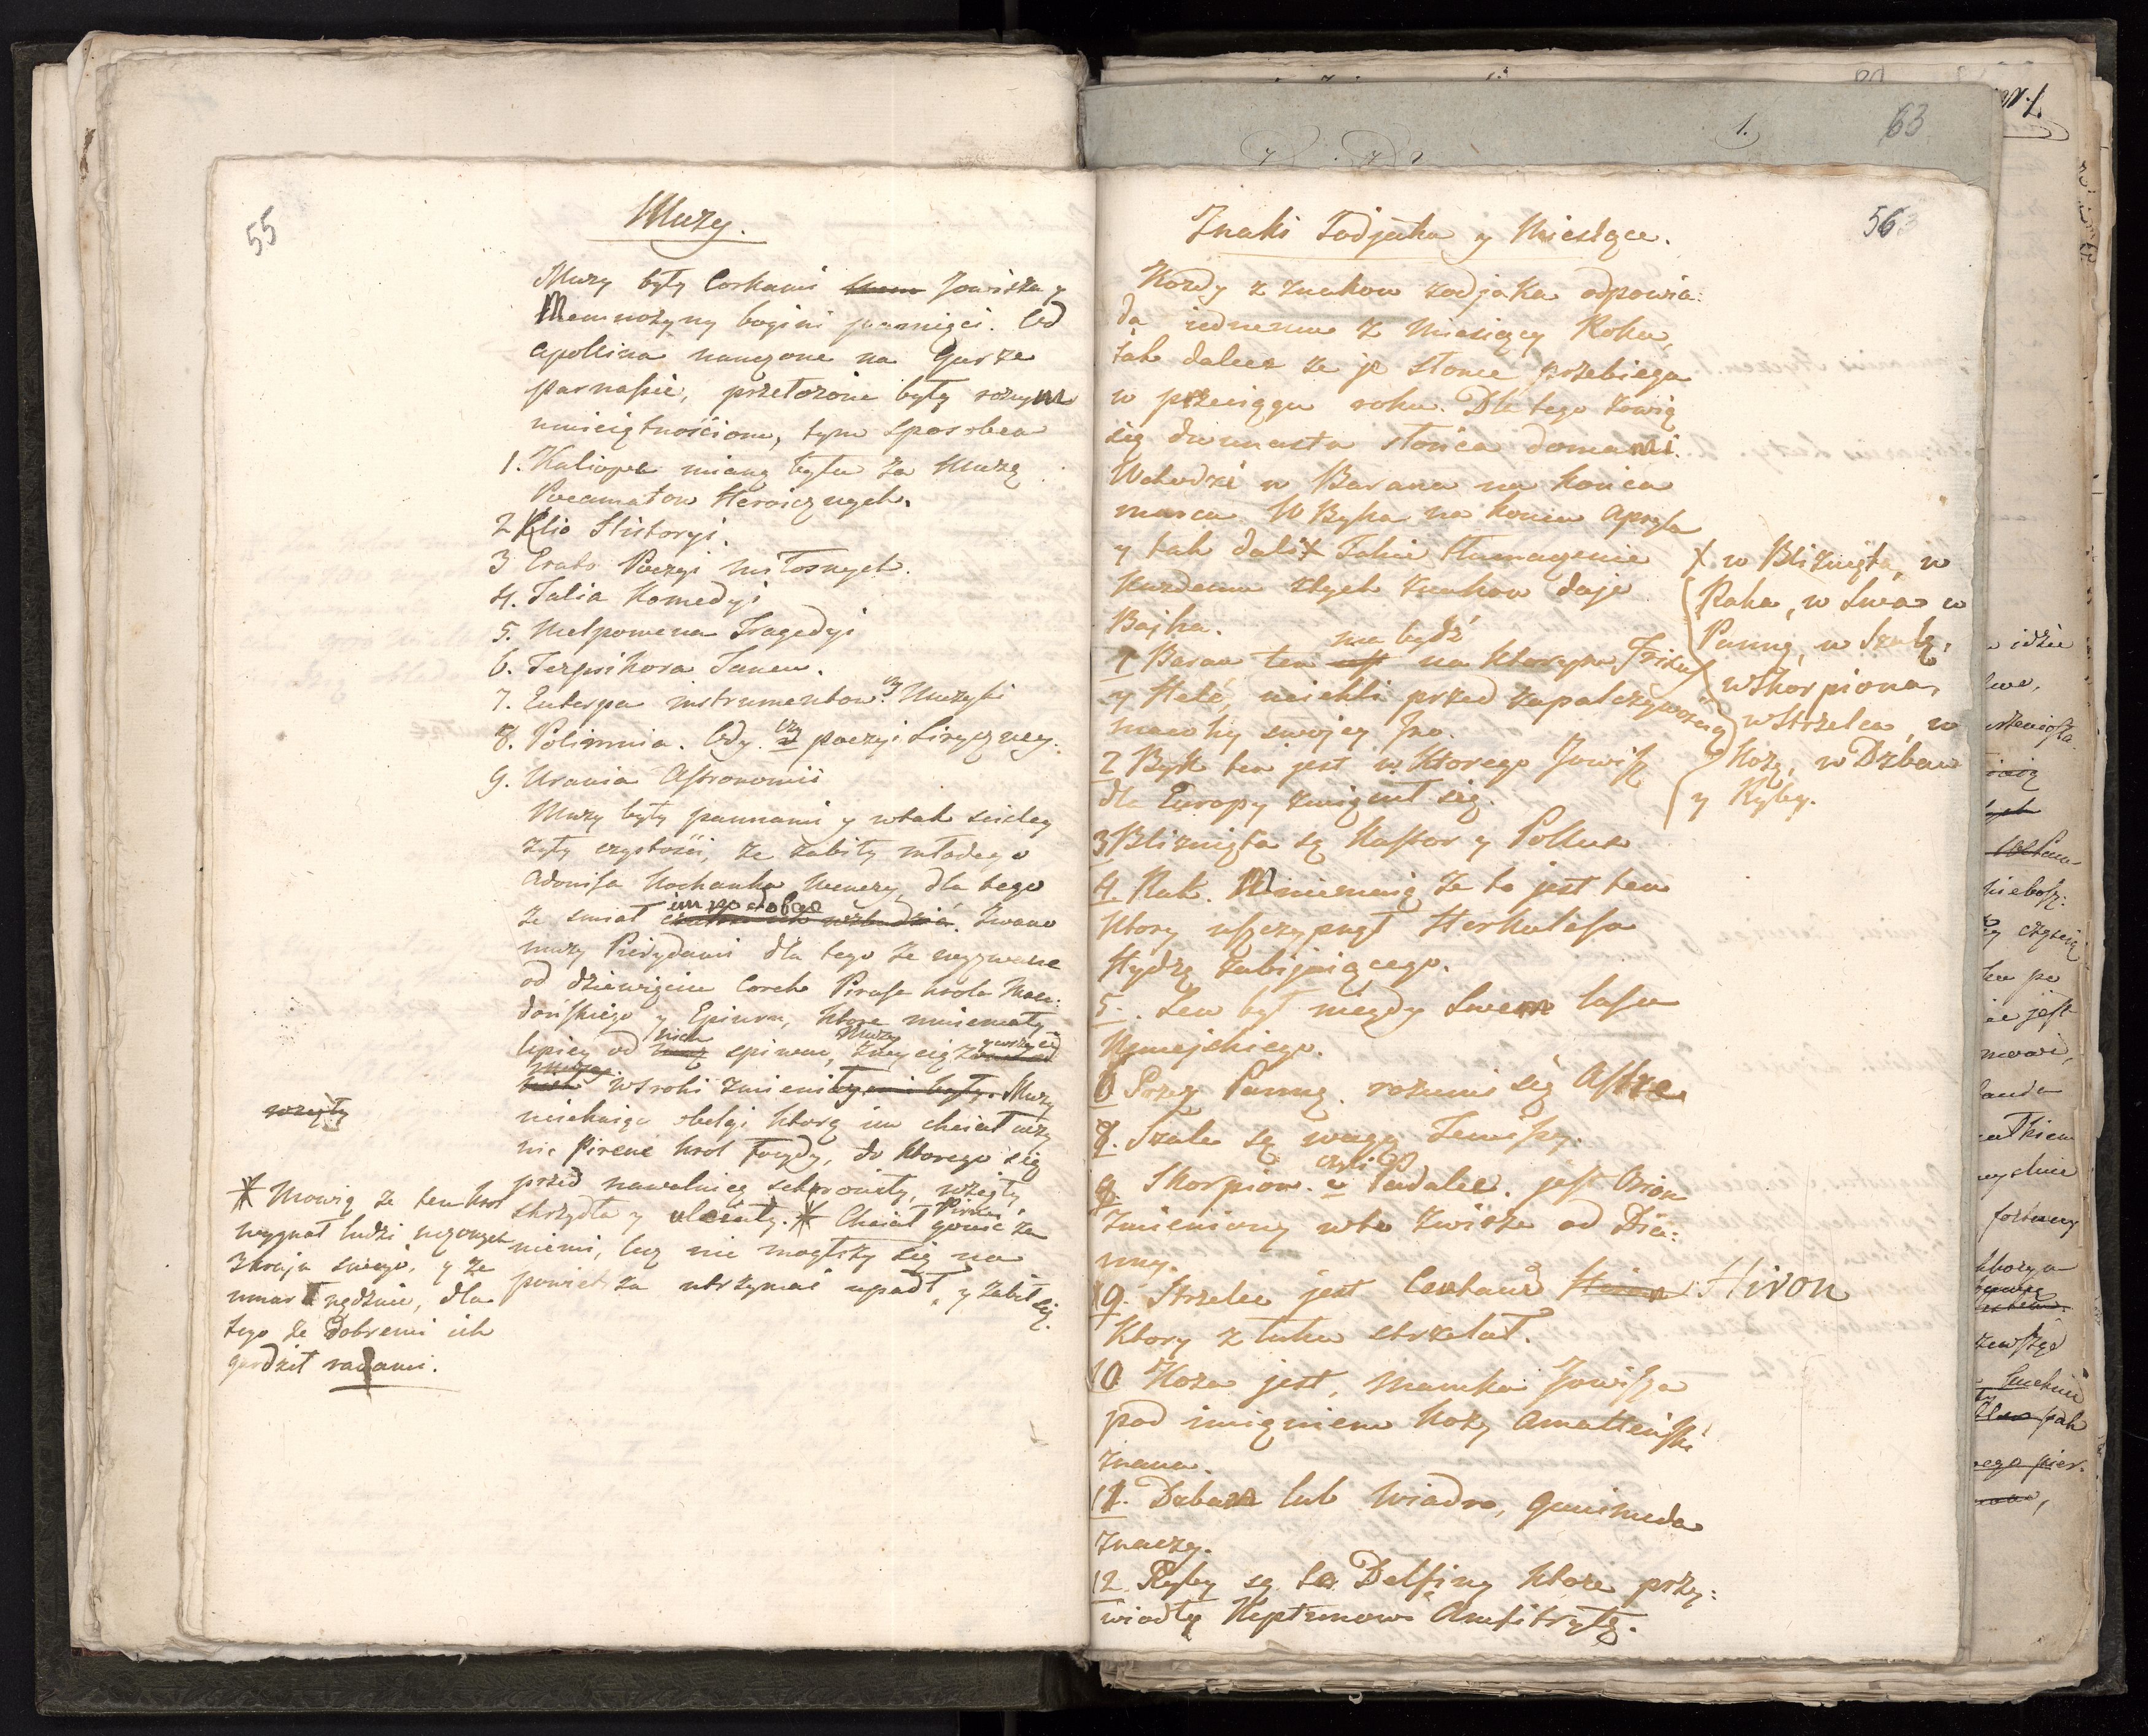 55
Muzy.
Muzy były Corkami Jowisza y
Memnozyny bogini pamięci. Od
Apollina nauczone na Gurze
Parnassie, przełozone były rożnym
umieiętnościom, tym sposobem
1. Kaliopa miang była za Muzę
Poeamatow Heroicznych.
2 Klio Historyi.
3 Erato Poezyi miłosnych.
4. Talia Komedyi
5. Melpomena Tragedyi
6. Terpsikora Tancu.
7. Euterpa instrumentow czy Muzyki
8. Polimnia. Ody. czy poezyi Liryczney.
9. Urania Astronomii
Muzy były pannami y wtak scisłey
zyły czystości, ze zabiły młodego
Adonisa Kochanka Wenery, dla tego
ze smiał im podobac. Zwano
muzy Pierydami dla tego ze wyzwane
od dziewięciu Corek Pirusa krola Mace:
dońskiego y Epiuru, ktore mniemały
lepiey od nich spiewac, Muzy zwyciężywszy ie
wsroki zmieniły. Muzy
uciekaiąc obelgi ktorą im chciał uczy
nic Pirene krol Focydy, do ktorego się
przed nawałnicą schroniły, wzięły
skrzydła y uleciały. * Chciał Pirene gonić za
niemi, lecz nie mogłszy się na
powietrza utrzymac upadł, y zabił się.
wzięły
* Mowią ze ten krol
wygnał ludzi uczonych
z kraju swego, y ze
umarł nędznie, dla
tego ze dobremi ich
gardził radami.
1. 63
56
Znaki Zodjaka y Miesiące.
Kozdy z znakow zodjaka odpowia:
da iednemu z Miesięcy Roku,
tak dalece ze je słonce przebiega
w przeciągu roku. Dla tego zowią
się dwunasta słońca domami.
Wchodzi w Barana na koncu
marca. W Byka na koncu Apryla
y tak dali X Takie tłumaczenie
Kazdemu ztych znakow daje
Bajka.
1 Baran ten ma bydź na ktorym Frixus
y Hele, uciekli przed zapalczywością
macochy swojey Ino.
2 Byk ten jest w ktorego Jowisz
dla Europy zmienił się.
3 Bliznięta są Kastor y Pollux
4. Rak. Mniemaią ze to jest ten
ktory uszczypnął Herkulesa
Hydrę zabijaiącego.
5. Lew był niegdy Lwem lasu
Nemejskiego.
6 Przez Pannę. rozumi się Astrea
7. Szale są wagą Temisy.
8. Skorpion czyli Padalec. jest Orion
Zmieniony wto zwirze od Dia:
nny.
9. Strzelec jest Centaur Hiron
ktory z łuku strzelał.
10 Koza jest, mamka Jowisza
pod imieniem kozy Amalteiski
znana.
11. Dzban lub Wiadro, Ganimeda
znaczy.
12 Ryby są to Delfiny ktore przy:
wiodły Neptunowi Amfitrytę.
X w Bliznięta, w
Raka, w Lwa w
Pannę, w Szalę,
w Skorpiona,
w Strzelca, w
Kozę, w Dzban
y Ryby.